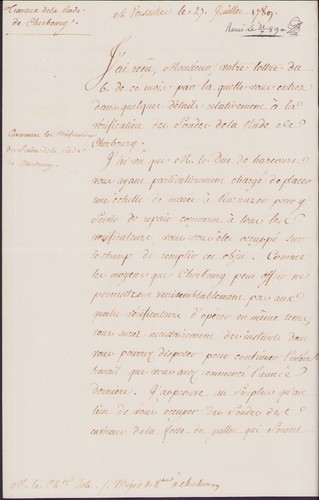 Travaux de la Rade
de Cherbourg.
A Versailles le 27. Juillet 1789.
J'ai reçu, Monsieur, votre lettre du
6. de ce mois par laquelle vous entrez
dans quelques détails relativement à la
vérification des Sondes de la Rade de
Cherbourg.
Concernant les Vérifications
des Sondes de la Rade
de Cherbourg.
J'ai vu que M. le Duc de
vous ayant particulierement chargé de placer
une échelle de marée à pour y
Servir de repaire commun à tous les
vérificateurs vous vous êtes occupé sur
le champ de remplir cet objet. Comme
les moyens que Cherbourg peut offrir ne
permettront vraisemblablement pas aux
quatre vérificateurs d'opérer en même tems,
vous aurez nécessairement des instants dont
vous pourrez disposer pour continuer
travail que vous avez commencé l'année
derniere. J'approuve au Surplus qu'au
lieu de vous occuper des Sondes des
environs de la fosse du gallet qui seront
M. le Ch.er de Major de à Cherbourg